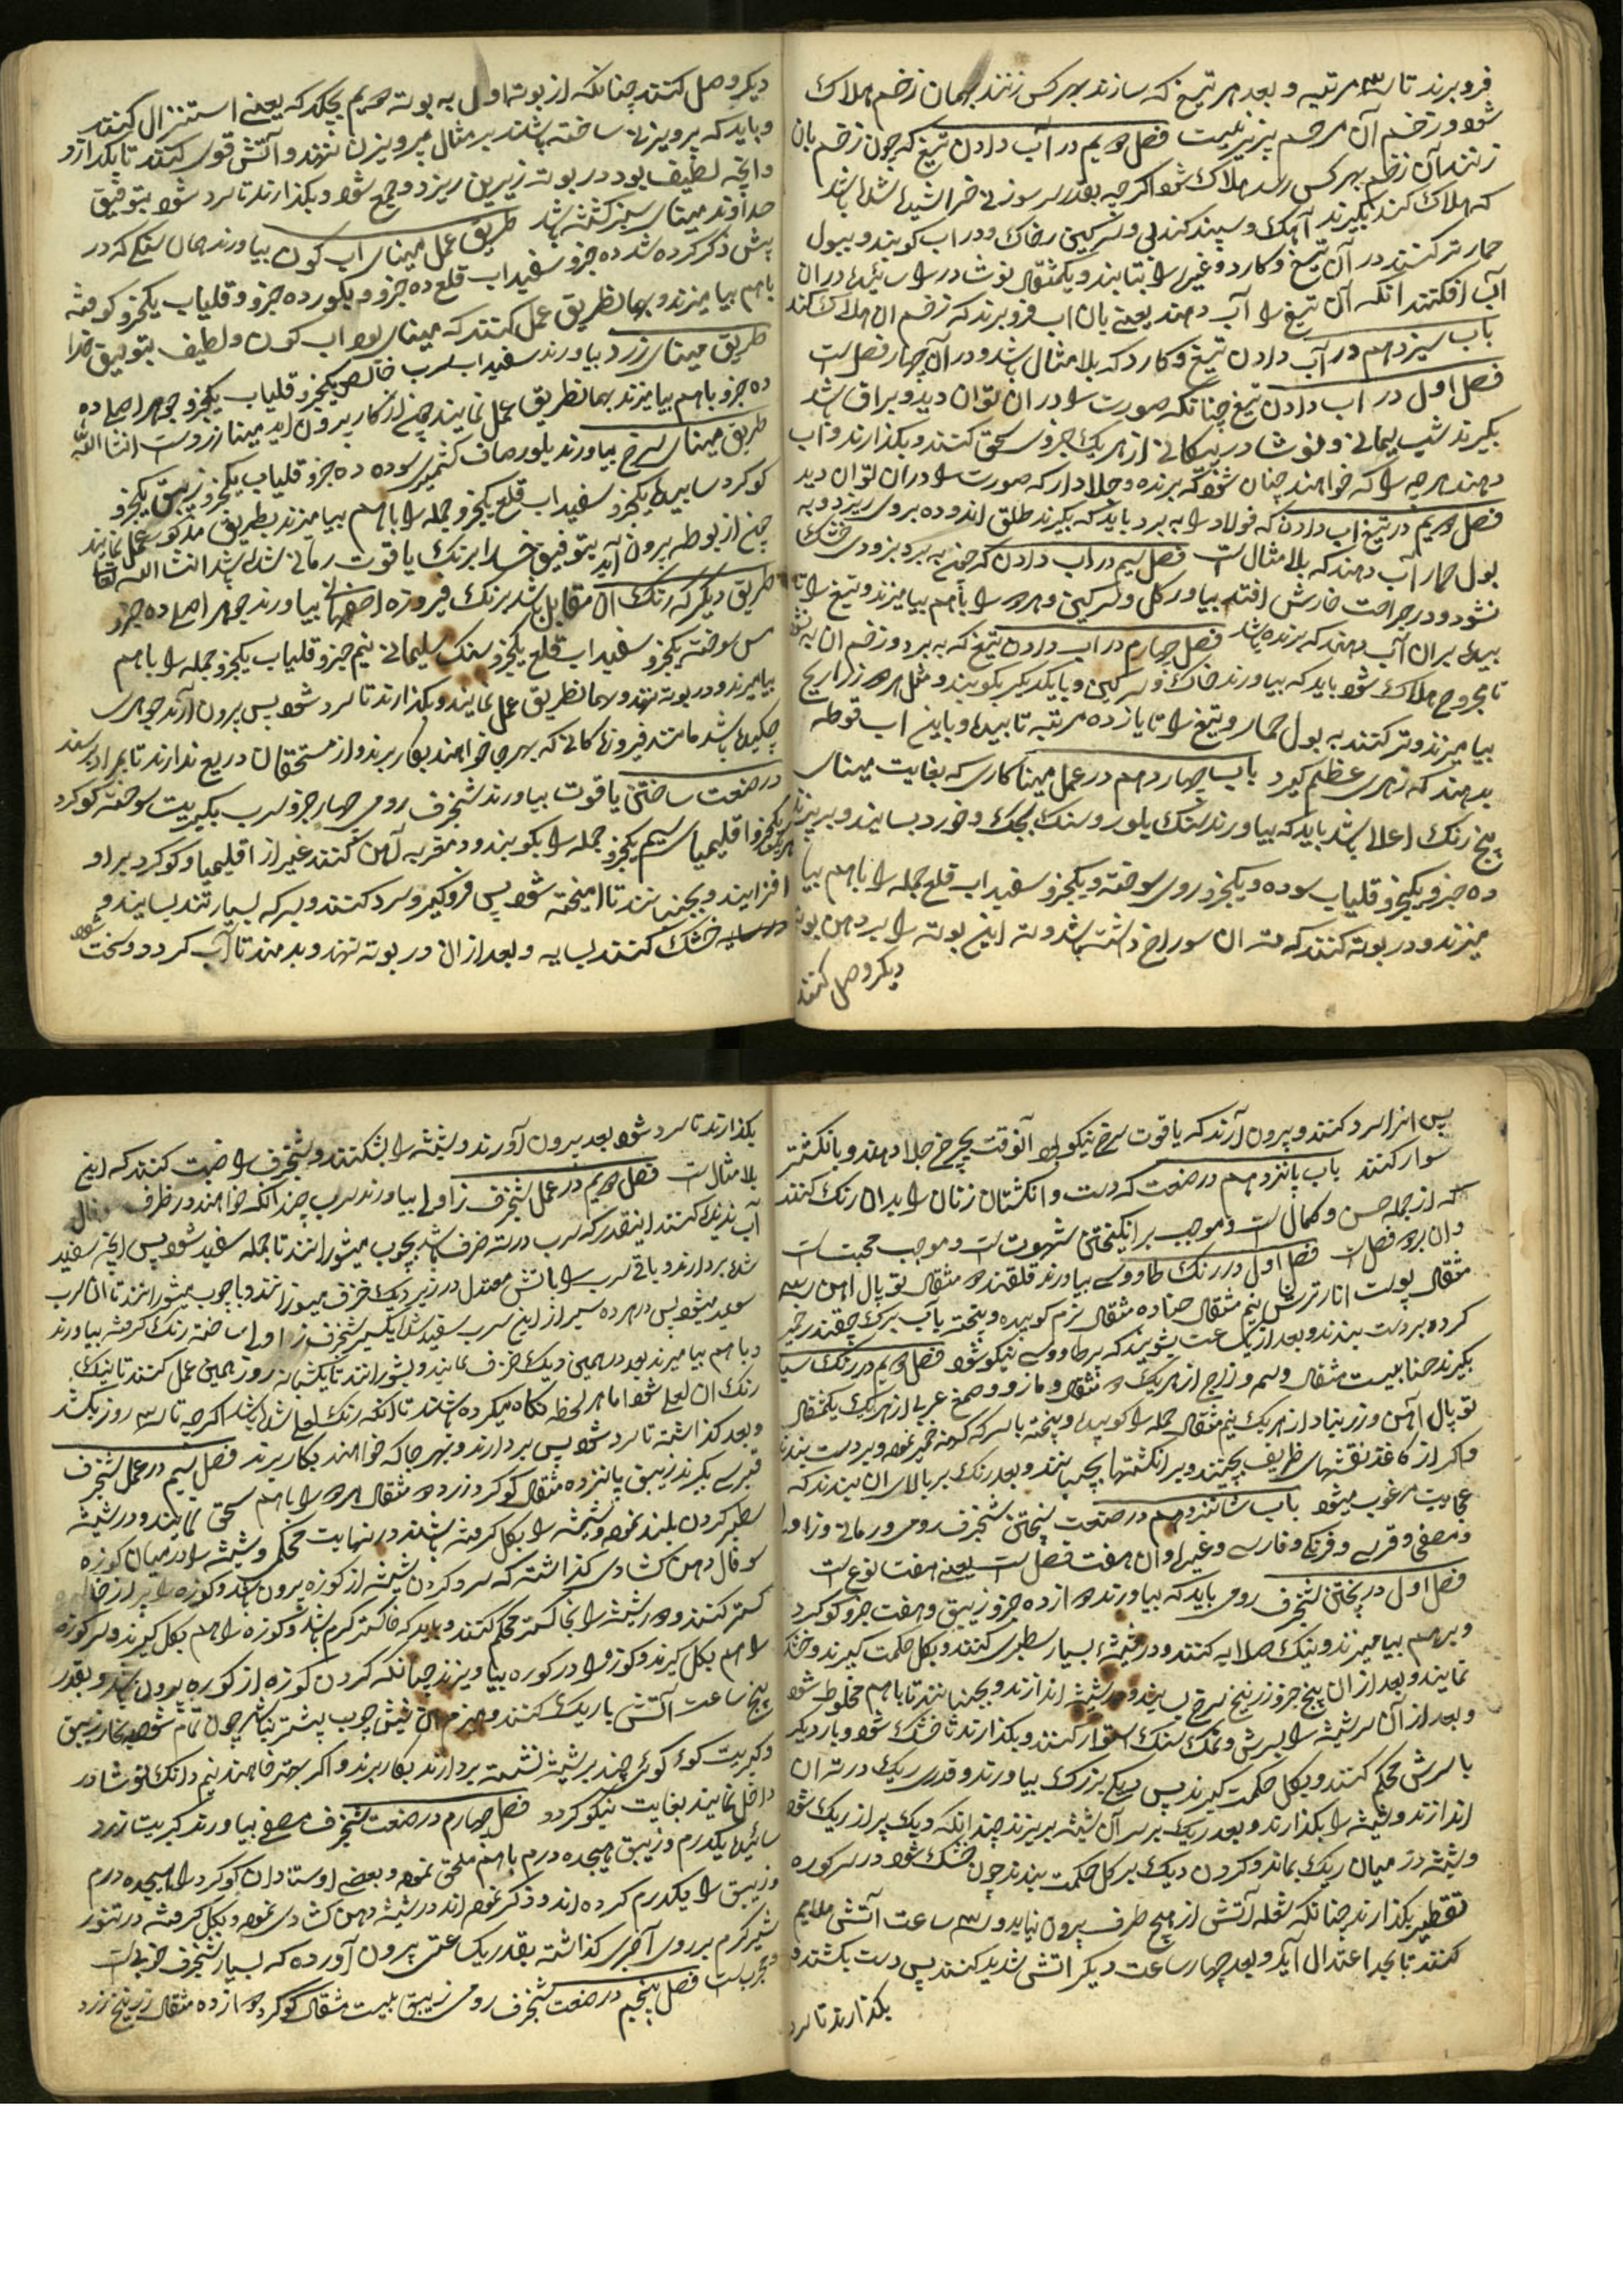 فرو برند تا سه مرتبه و بعد هر تیغ که سازند بهر کس زنند بهمان زخم هلاک
شود و زخم آن مرهم پزیر نیست فصل دویم در آب دادن تیغ که چون زخم بان
زنند آن زخم بهر کس رسد هلاک شود اکرچه بقدر سر سوزنی خراشیده شده باشد
که هلاک کند بکیرند آهک و سپند کندنی و سرکین و خاک و در اب کوبند و ببول
حمار تر کنند در آن تیغ و کارد و غیره را بتابند و یکمثقال نوشادر را سائیده در ان
آب افکنند انکه آن تیغ را آب دهند یعنی بان اب فرو برند که زخم ان هلاک کند
باب سیزدهم در آب دادن تیغ و کارد که بلا مثال باشد و در آن چهار فصل است
فصل اول در اب دادن تیغ چنانکه صورت را در ان توان دید و براق باشد
بکیرند شب یمانی و نوشادر پیکانی از هر یک جزوی سحق کنند و بکذارند و اب
دهند هر چه را که خواهند چنان شود که برنده و جلادار که صورت را در ان توان دید
فصل دویم در تیغ اب دادن که فولاد را به برد باید که بکیرند طلق اندوده بروی ریزد و به
بول حمار آب دهند که بلا مثال است فصل سیم در اب دادن که چیزی به برد بزودی خشک
نشود و در جراحت خارش افتد بیاور کل و سرکین و هر دو را باهم بیامیزند و تیغ را تا
بیده بر ان آب دهند که برنده باشد فصل چهارم در اب دادن تیغ که به برد و زخم ان به نشود
تا مجروح هلاک شود باید که بیاورند خاک و سرکین و بایکدیکر بکوبند و مثل هر دو زراریح
بیامیزند و تر کنند به بول حمار و تیغ را تا یازده مرتبه تابیده و باین اب غوطه
بدهند که زهری عظیم کیرد باب چهاردهم در عمل مینا کاری که بغایت مینای
پنج رنک اعلا باشد باید که بیاورند سنک بلور و سنک محک و خورد بسایند و بریزند
ده جزو یکجزو قلیاب سوده و یکجزو روی سوخته و یکجزو سفیداب قلع جمله را باهم بیا
میزند و در بوته کنند که ته ان سوراخ داشته باشد و ته این بوته را بر دهن بوته
دیکر وصل کنند
دیکر وصل کنند چنانکه از بوته اول به بوته دویم بچکد که یعنی استنزال کنند
و باید که پرویزنی ساخته باشند بر مثال پرویزن نهند و آتش قوی کنند تا بکدازد
و انچه لطیف بود در بوته زیرین ریزد و جمع شود و بکذارند تا سرد شود بتوفیق
خداوند مینای سبز کشته باشد طریق عمل مینای اب کون بیاورند همان سنکی که در
پیش ذکر کرده شد ده جزو سفیداب قلع ده جزو و یکجزو و قلیاب یکجزو کوفته
باهم بیامیزند و بهمانطریق عمل کنند که مینای بود اب کون و لطیف بتوفیق خدا
طریق مینای زرد بیاورند سفیداب سرب خالص یکجزو قلیاب یکجزو جوهر اصلی ده
ده جزو باهم بیامیزند بهمانطریق عمل نمایند چون از کار بیرون اید مینا زردست انشاالله
طریق مینای سرخ بیاورند بلور صاف کشمیری سوده ده جزو قلیاب یکجزو زیبق یکجزو
کوکرد سائیده یکجزو سفیداب قلع یکجزو جمله را باهم بیامیزند بطریق مذکور عمل نمایند
چون از بوطه بیرون اید بتوفیق خدا برنک یاقوت رمانی شده باشد انشاالله تعالی
طریق دیکر که رنک ان مقابل باشد برنک فیروزه اصفهانی بیاورند جوهر اصلی ده جزو
مس سوخته یکجزو سفیداب قلع یکجزو سنک سلیمانی نیم جزو قلیاب یکجزو جمله را باهم
بیامیزند و در بوته نهند و بهمانطریق عمل نمایند و بکذارند تا سرد شود پس بیرون آرند جوهری
چکیده باشد مانند فیروزه کانی که بهر جا خواهند بکار برند و از مستحقان دریغ ندارند تا بمراد برسند
در صنعت ساختن یاقوت بیاورند شنجرف رومی چهار جزو سرب بکبریت سوخته کوکرد
یکجزو اقلیمیای سیم یکجزو جمله را بکوبند و در مقربه آهن کنند غیر از اقلیمیا و کوکرد بر او
افزایند و بجنبانند تا امیخته شود پس فروکیر و سرد کنند و بسرکه بسیار تند بسایند و
در سایه خشک کنند بسایه و بعد از ان در بوته نهند و بدمند تا آب کردد و سخت شود
پس انرا سرد کنند و بیرون آرند که یاقوت سرخ نیکو بود آنوقت بچرخ جلا دهند و بانکشتر
سوار کنند باب پانزدهم در صنعت که دست و انکشتان زنان را بدان رنک کنند
که از جمله حسن و کمال است و موجب بر انکیختن شهوت است و موجب محبت است
و ان بر دو فصل است فصل اول در رنک طاووسی بیاورند قلقند دو مثقال توپال اهن سه
مثقال پوست انار ترش نیم مثقال حنا ده مثقال نرم کوبیده و بیخته بآب برک چقندر خمیر
کرده بر دست بندند و بعد از یکساعت بشویند که پر طاووسی نیکو شود فصل دویم در رنک سیاه
بکیرند حنا بیست مثقال وسمه و زاج از هر یک دو مثقال و مازو و صمغ عربی از هر یک یکمثقال
توپال آهن و زربناد از هر یک نیم مثقال جمله را کوبیده و بیخته با سرکه کهنه خمیر نموده و بر دست بندند
و اکر از کاغذ نقشهای ظریف بچینند و بر انکشتها بچسبانند و بعد رنک بر بالای ان ببندند که
بغایت مرغوب میشود باب شانزدهم در صنعت پختن شنجرف رومی و رمانی و زاولی
و مصفی و قربی و فرنکی و فارسی و غیره و ان هفت فصل است یعنی هفت نوع است
فصل اول در پختن شنجرف رومی باید که بیاورند دوازده جزو زیبق و هفت جزو کوکرد
و بر هم بیامیزند و نیک صلایه کنند و در شیشه بسیار سطبری کنند و بکل حکمت کیرند و خشک
نمایند و بعد از ان پنج جزو زرنیخ سرخ بسایند و در شیشه اندازند و بجنبانند تا باهم مخلوط شود
و بعد از آن سر شیشه را بسرش و نمک سنک استوار کنند و بکذارند تا خشک شود و بار دیکر
با سرش محکم کنند و بکل حکمت کیرند پس دیکی بزرک بیاورند و قدری ریک در ته ان
اندازند و شیشه را بکذارند و بعد ریک بر سر آن شیشه بریزند چندانکه دیک پر از ریک شود
و شیشه در میان ریک بماند و کردن دیک بر کل حکمت بندند چون خشک شود در سر کوره
تقطیر بکذارند چنانکه شعله آتش از هیچ طرف بیرون نیاید و سه ساعت آتش ملایم
کنند تا بحد اعتدال آید و بعد چهار ساعت دیکر اتش شدید کنند پس دست بکشند و
بکذارند تا سرد
بکذارند تا سرد شود بعد بیرون آورند و شیشه را بشکنند و شنجرف را ضبط کنند که اینچنین
بلا مثال است فصل دویم در عمل شنجرف زاولی بیاورند سرب چندانکه خواهند در ظرف سفال
آب ندیده کنند اینقدر که سرب در ته ظرف باشد بچوب میشورانند تا جمله سفید شود پس انچه سفید
شده بردارند و باقی سرب را باتش معتدل در زیر دیک خزف میسوزانند و با چوب میشورانند تا ان سرب
سفید میشود پس در هر ده سیر از این سرب سفید شده یکسیر شنجرف زاولی ساخته رنک کرفته بیاورند
و باهم بیامیزند بعد در همین دیک خزف نمایند و بشورانند تا یکشبانه روز همین عمل کنند تا نیک
رنک ان لعلی شود اما هر لحظه نکاه میکرده باشند تا انکه رنک لعلی شده باشد اکرچه تا سه روز بکشد
و بعد کذاشته تا سرد شود پس بردارند و بهر جا که خواهند بکار برند فصل سیم در عمل شنجرف
قبرسی بکیرند زیبق پانزده مثقال کوکرد زرد دو مثقال هر دو را باهم سحق نمایند و در شیشه
سطبر کردن بلند نموده و شیشه را بکل کرفته باشند در نهایت محکم و شیشه را در میان کوزه
سفال دهن کشادی کذاشته که سر و کردن شیشه از کوزه بیرون باشد و کوزه را پر از خا
کستر کنند و دور شیشه را بخاکستر محکم کنند و باید که خاکستر کرم باشد و کوزه را هم بکل کیرند و سر کوزه
را هم بکل کیرند و کوزه را در کوره بیاویزند چنانکه کردن کوزه از کوره بیرون باشد و بقدر
پنج ساعت آتش باریک کنند و هیزم ان شش چوب بیشتر نباشد چون تمام شود بخار زیبق
و کبریت کوئی کوئی چند بر شیشه نشسته بردارند بکار برند و اکر بهتر خواهند نیم دانک نوشادر
داخل نمایند بغایت نیکو کردد فصل چهارم در صنعت شنجرف مصفی بیاورند کبریت زرد
سائیده یکدرم و زیبق هیجده درم باهم ملحق نموده و بعضی اوستادان کوکرد را هیجده درم
و زیبق را یکدرم کرده اند و ذکر نموده اند در شیشه دهن کشادی نموده و بکل کرفته در تنور
شیر کرم بر روی آجری کذاشته بقدر یکساعتی بیرون آورده که بسیار شنجرف خوبی است
و مجرب است فصل پنجم در صنعت شنجرف رومی زیبق بیست مثقال کوکرد دوازده مثقال زرنیخ زرد